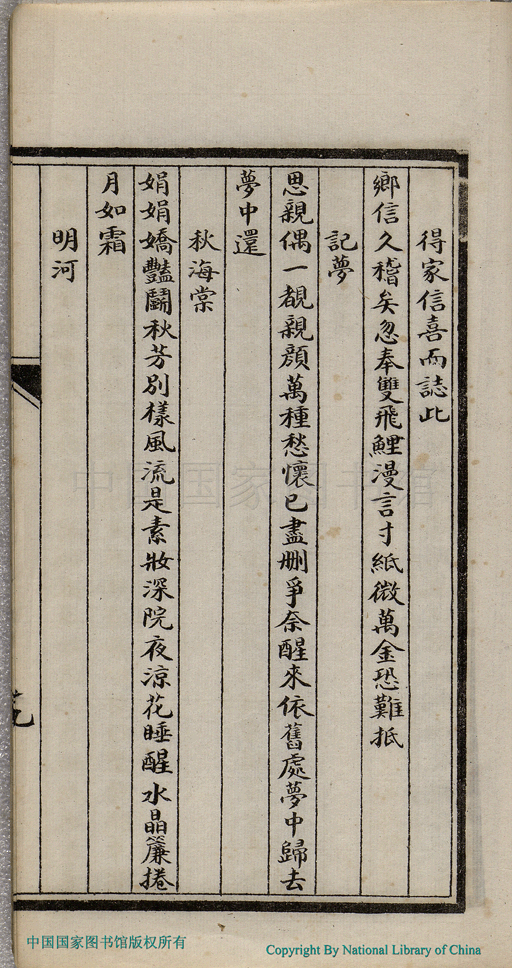 得家信喜而誌此
鄉信久稽矣忽奉雙飛鯉漫言寸紙微萬金恐難抵
記夢
思親偶一覩親顔萬種愁懷已盡刪爭奈醒來依舊處夢中歸去
夢中還
秋海棠
娟娟嬌豔鬭秋芳別樣風流是素妝深院夜涼花睡醒水晶簾捲
月如霜
明河
中国国家图书馆
中国国家图书馆版权所有
Copyright By National Library of China